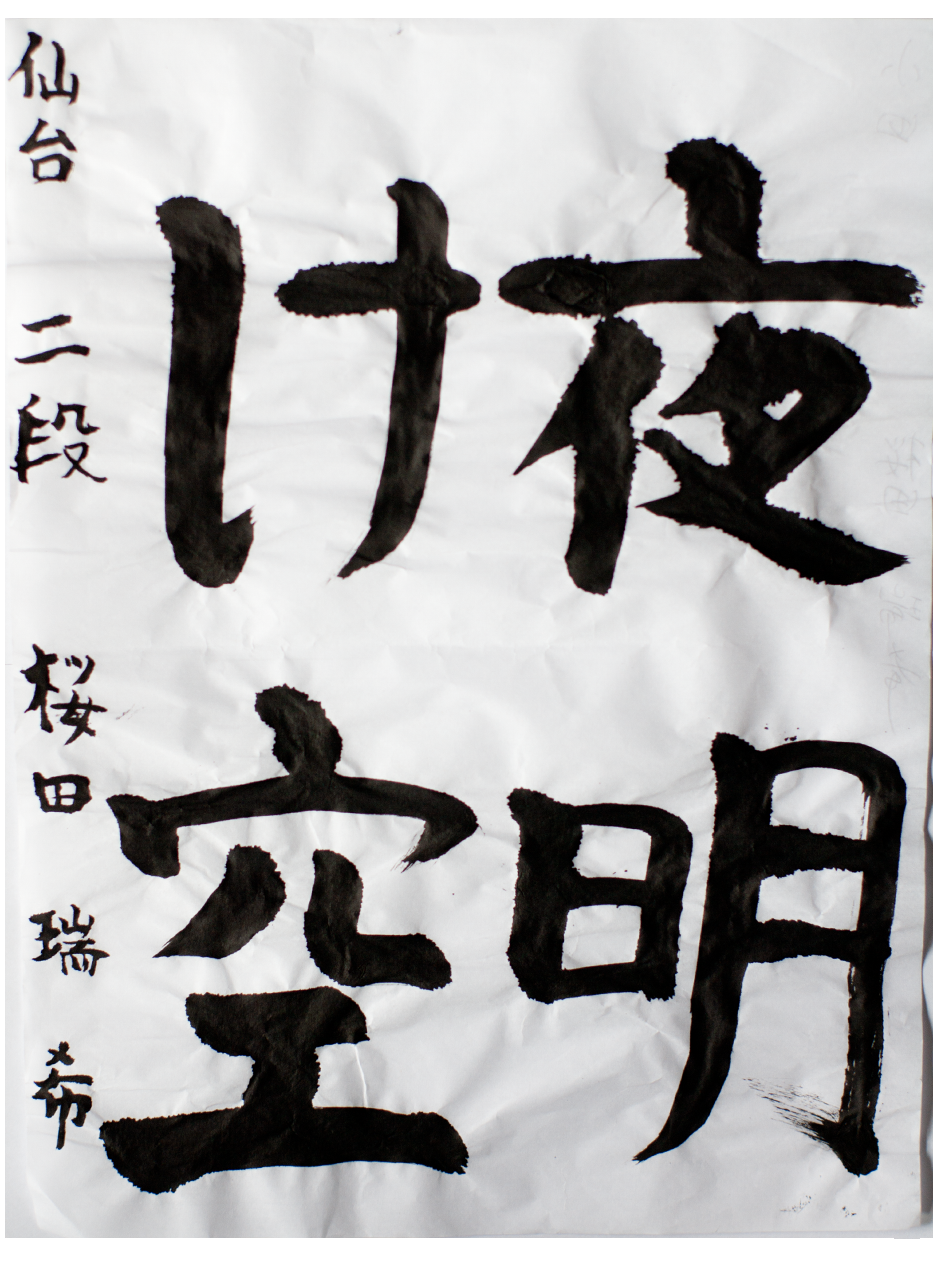 夜明
け空
仙台 二段 桜田 瑞希